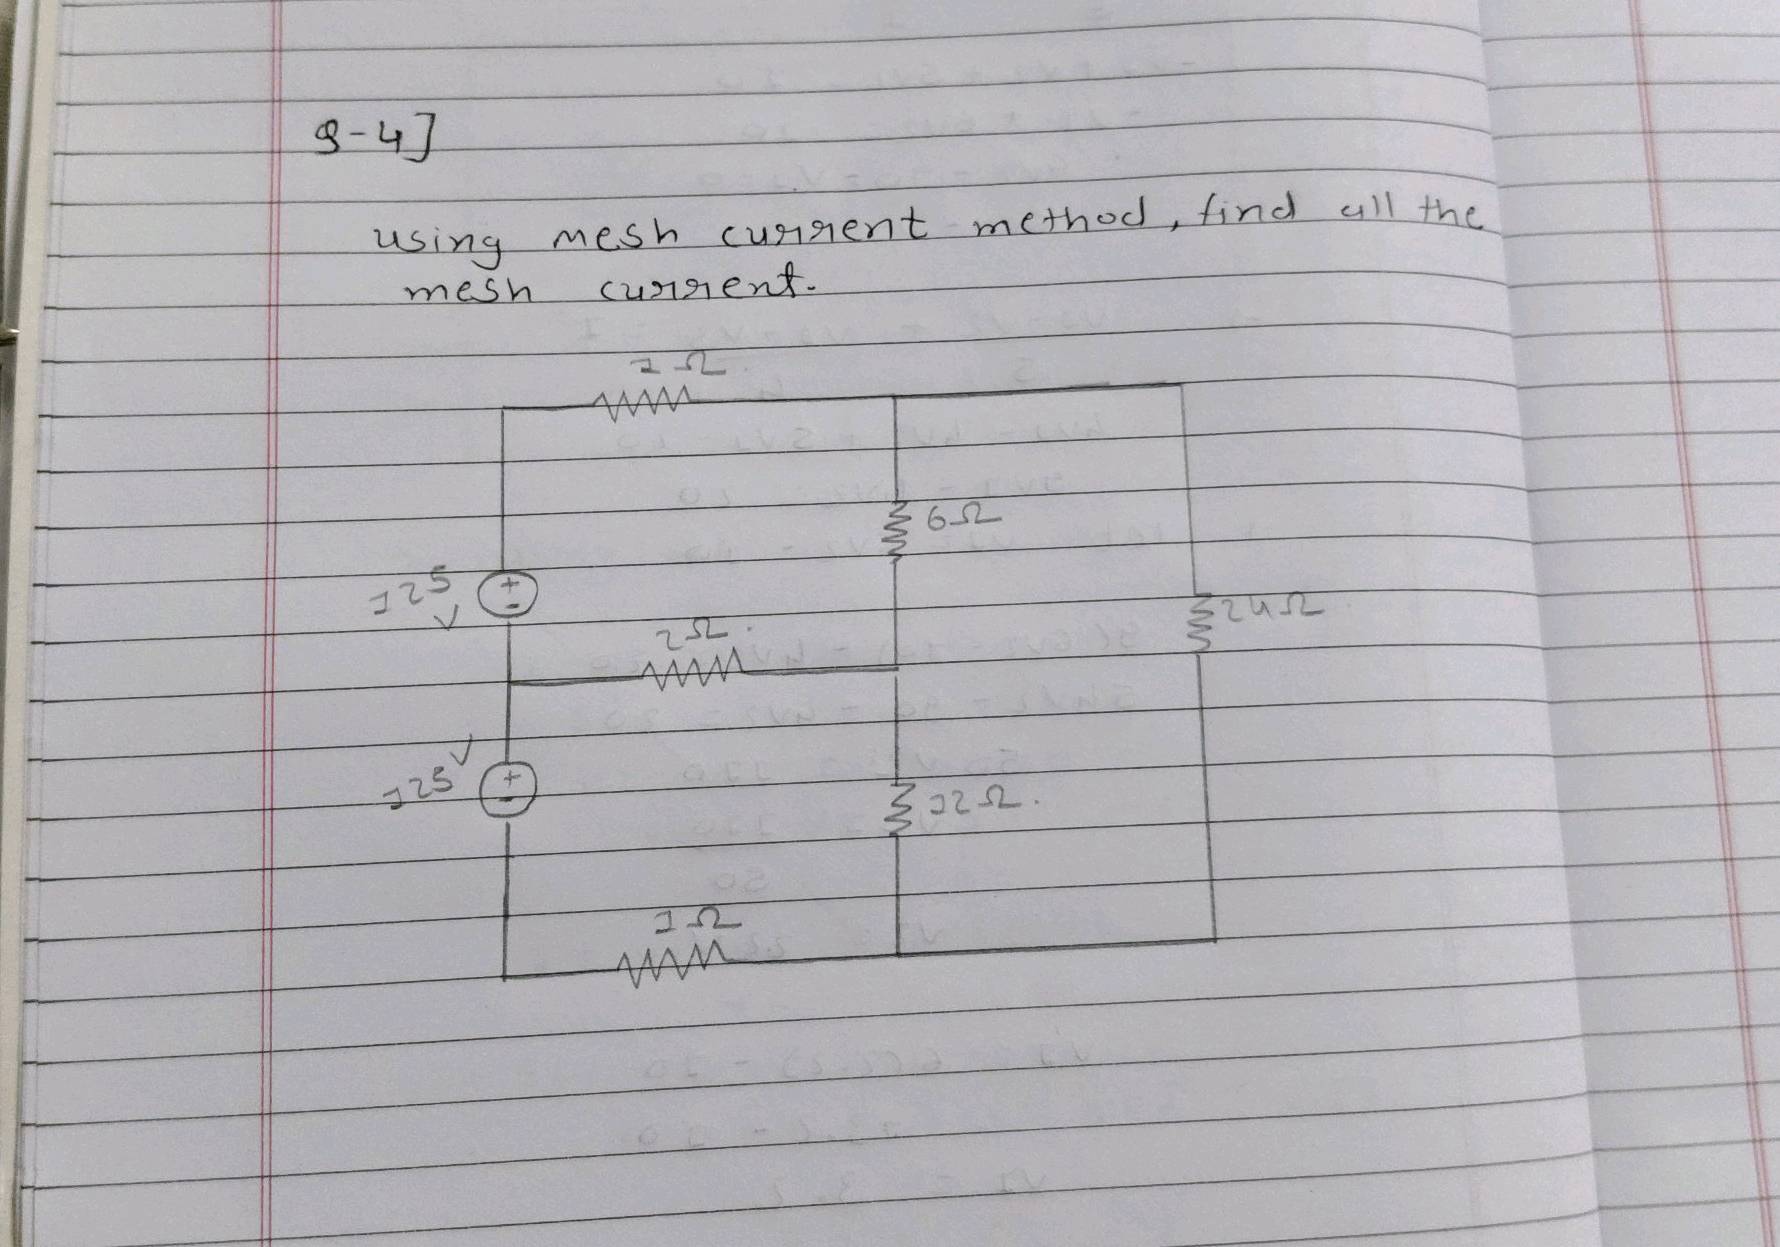 Q-4]
using mesh current method, find all the
mesh current.
1Ω
6Ω
125
V
24Ω
2Ω.
125 V
12Ω.
1Ω
+
-
+
-